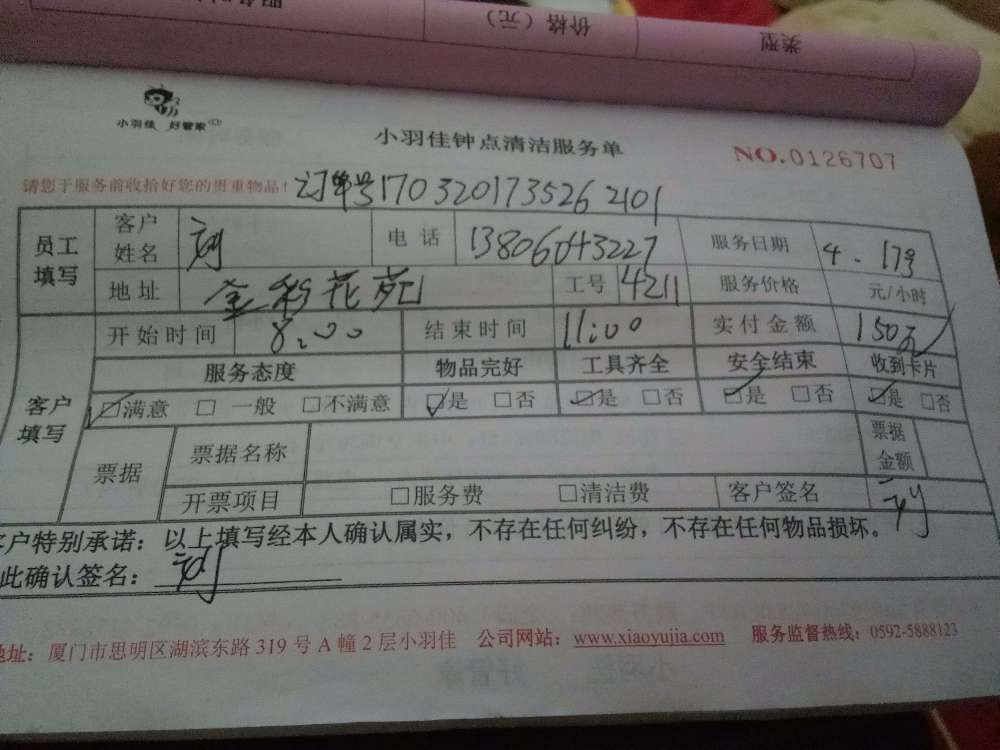 类型 价格（元）
小羽佳 好管家
小羽佳钟点清洁服务单
NO.0126707
请您于服务前收拾好您的贵重物品！ 订单号1703201735262101
员工填写 客户姓名 刘 电话 13806043227 服务日期 4.17号
地址 金彩花苑 工号 4211 服务价格 元/小时
开始时间 8:00 结束时间 11:00 实付金额 150元
客户填写 服务态度 物品完好 工具齐全 安全结束 收到卡片
☑满意 □一般 □不满意 ☑是 □否 ☑是 □否 ☑是 □否 ☑是 □否
票据 票据名称 票据金额
开票项目 □服务费 □清洁费 客户签名 刘
客户特别承诺：以上填写经本人确认属实，不存在任何纠纷，不存在任何物品损坏。
此确认签名：刘
地址：厦门市思明区湖滨东路 319 号 A 幢 2 层小羽佳 公司网站：www.xiaoyujia.com 服务监督热线：0592-5888123